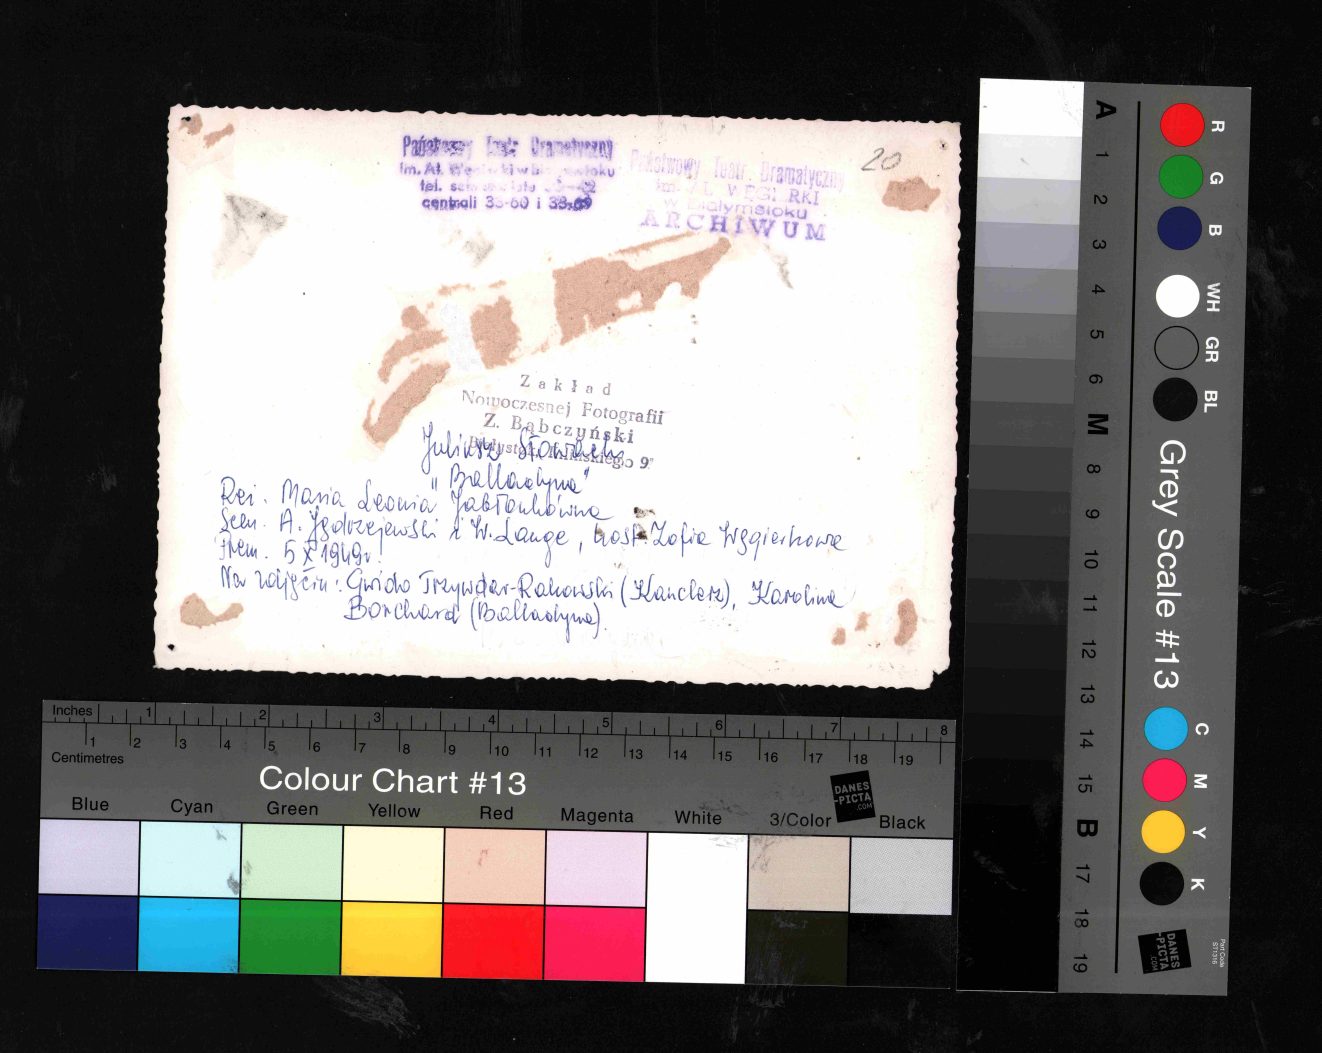 Państwowy Teatr Dramatyczny
im. Al. Węgierki w
tel.
centrali 33-60 i 33-69
Państwowy Teatr Dramatyczny
im. AL. WĘGIERKI
w Białymstoku
ARCHIWUM
20
Zakład
Nowoczesnej Fotografii
Z. Bąbczyński
Białystok, Kilińskiego 9
Juliusz Słowacki
"Balladyna"
Reż. Maria Leonia Jabłonkówna
Scen. A. Jędrzejewski i W. Lange, kost. Zofia Węgierkowa
Prem. 5 X 1949r.
Na zdjęciu: Gwido Trzywdar-Rakowski (Kanclerz), Karolina
Borchard (Balladyna).
Inches 1 2 3 4 5 6 7 8
1 2 3 4 5 6 7 8 9 10 11 12 13 14 15 16 17 18 19
Centimetres
Colour Chart #13
DANES
-PICTA
.COM
Blue Cyan Green Yellow Red Magenta White 3/Color Black
A 1 2 3 4 5 6 M 8 9 10 11 12 13 14 15 B 17 18 19
R G B WH GR BL
Grey Scale #13
C M Y K
DANES
-PICTA
.COM
Part Code
ST1316